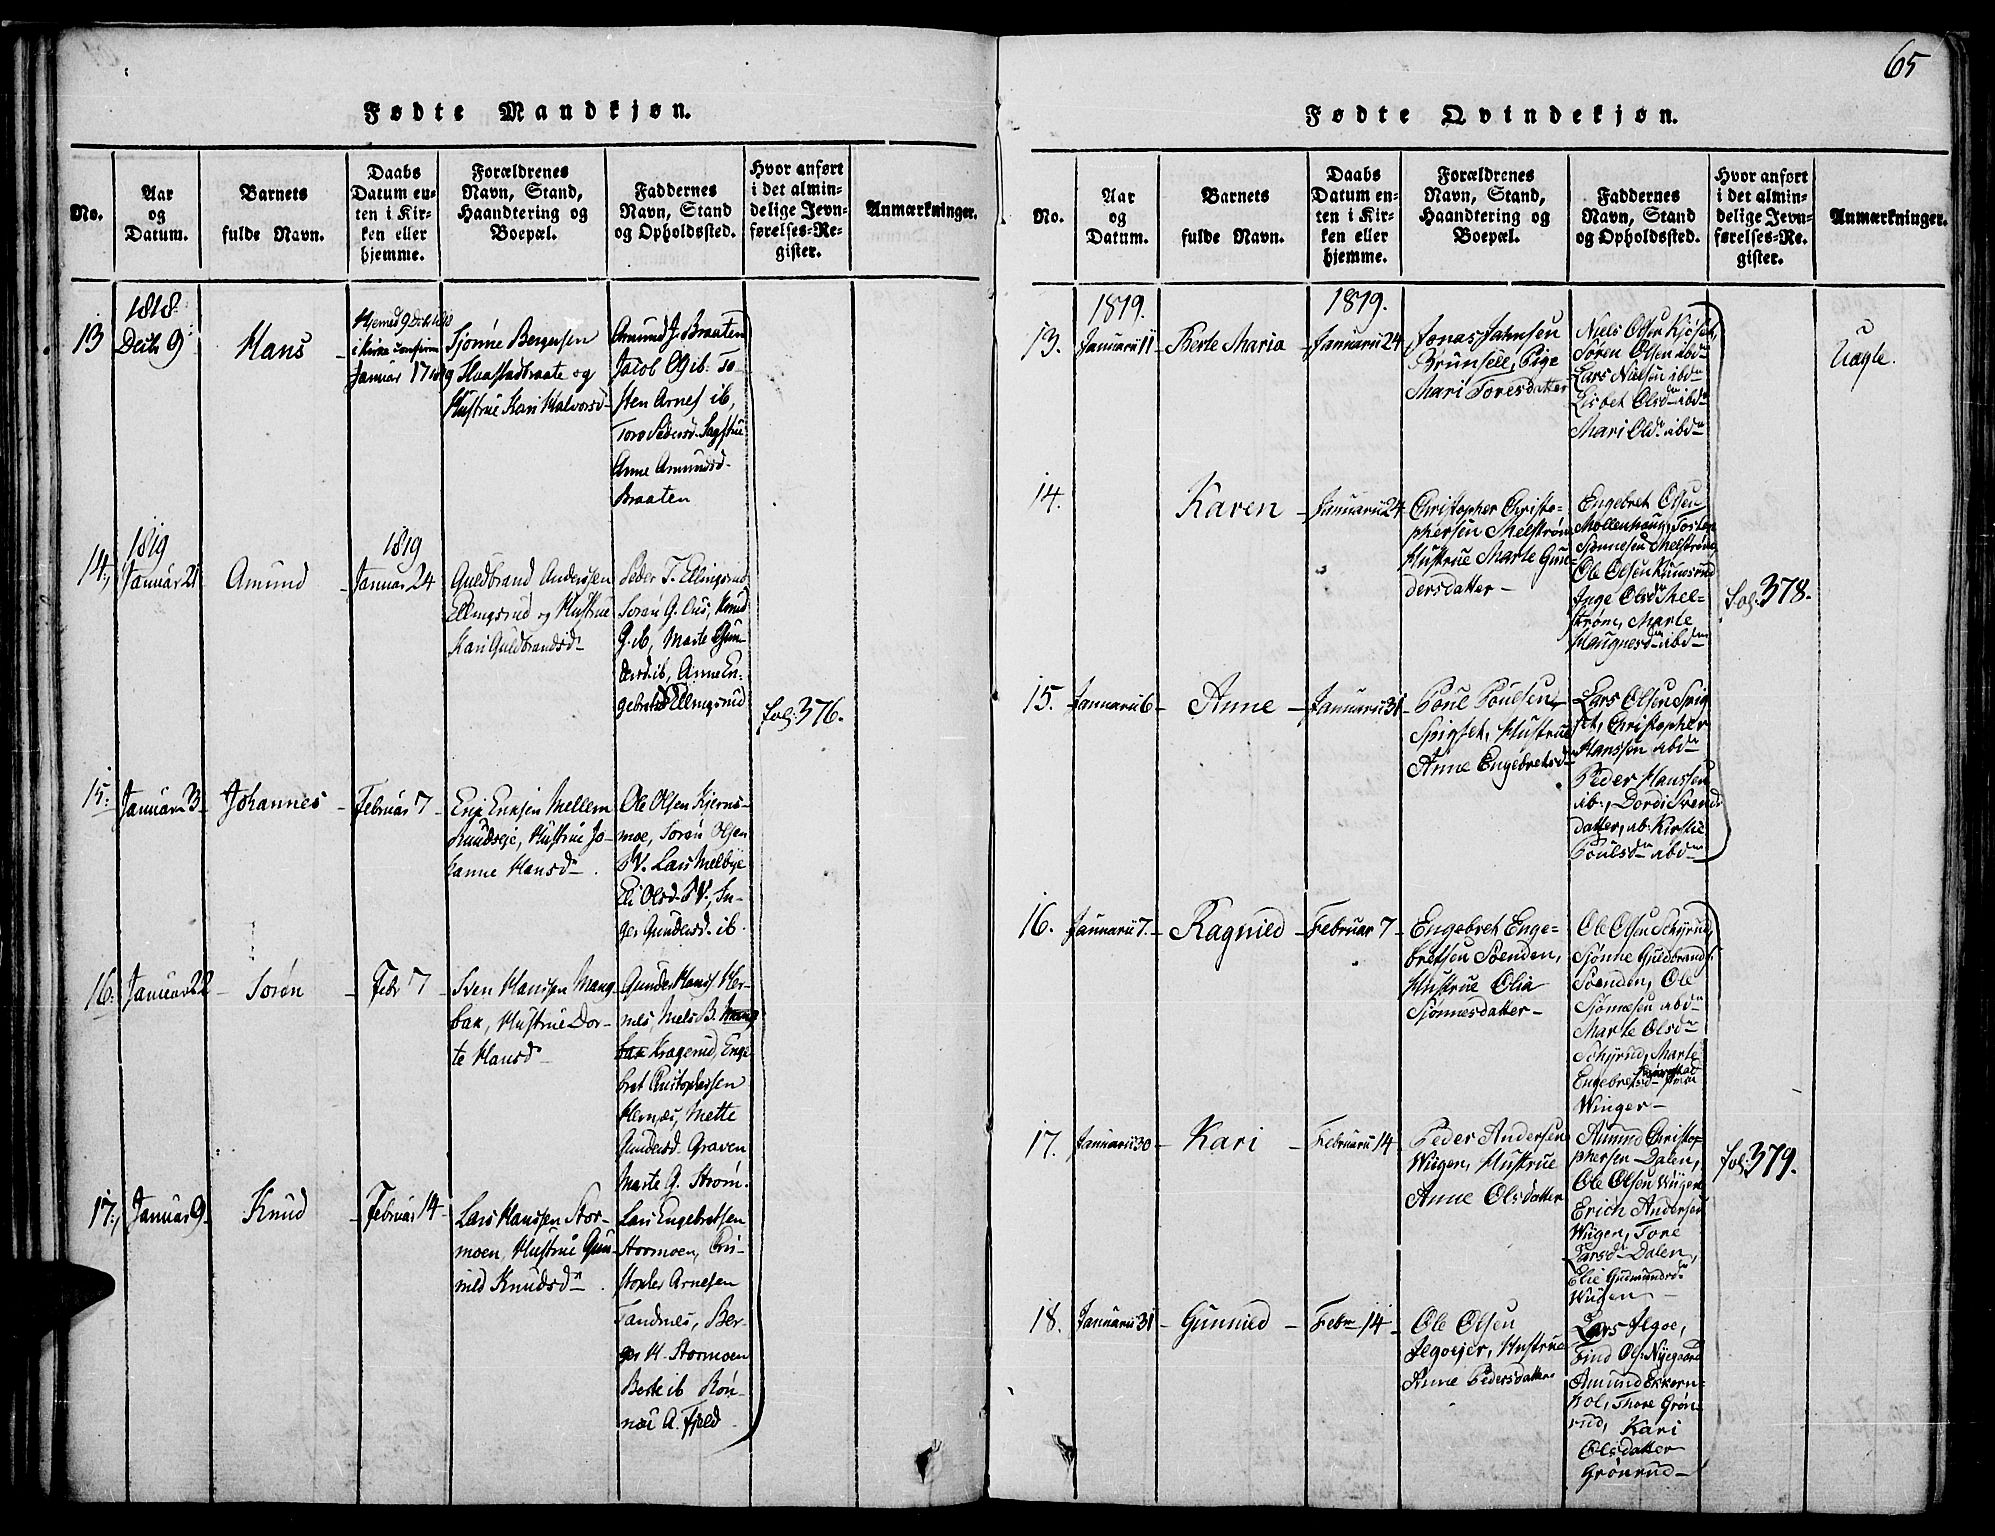 Fødte Mandkjøn.
No.
Aar
og
Datum.
Barnets
fulde Navn.
Daabs
Datum en-
ten i Kir-
ken eller
hjemme.
Forældrenes
Navn, Stand,
Haandtering og
Boepæl.
Faddernes
Navn, Stand
og Opholdssted.
Hvor anført
i det almin-
delige Jevn-
førelses-Re-
gister.
Anmærkninger.
13
1818
Decbr 9
Hans
Hjemd 9 Dcbr 1818
i Kirke confirm
Januar 17 1819
Sjønne Bergersen
Haastadbraate og
Hustrue Kari Halvorsd
Amund J. Braaten
Jacob O ib. To-
sten Arnes ib,
Tore Pedersd. Sagstue
Anne Amundsd.
Braaten
14,
1819
Januar 21
Amund
1819
Januar 24
Guldbrand Anderssen
Ellingsrud og Hustrue
Kari Guldbrandsd
Peder T. Ellingsrud
Soren G. Ous, Knud
G. ib, Marte Gun-
dersd. ib, Anne En-
gebretsd Ellingsrud
15:
Januar 3
Johannes
Februar 7
Eric Ericksen Mellem
hundseje, Hustrue Jo-
hanne Hansd
Ole Olsen Kjerns-
moe, Soren Olsen
N. Lars Melbye
Eli Olsd. N., In-
ger Gundersd. ib.
16.
Januar 22
Sorøn
Febr 7
Sven Hanssen Mang-
bak, Hustrue Dor-
te Hansd
Gunder Hans Her-
nes, Niels B. Mang
bak Kragerud, Enge
bret Christophersen
Hernæs, Mette
Gundersd. Graven
Marte G. Strøm.
17.,
Januar 9
Knud
Februar 14
Lars Hanssen Stor-
moen, Hustrue Gun-
nild Knudsd
Lars Engebretsen
Stormoen, Chri-
stopher Arnesen
Tandnes, Ber-
ger H. Stormoen
Berte ib Røn-
nau A. Fjeld
fol: 376.
65
Fødte Qvindekjøn.
No.
Aar
og
Datum.
Barnets
fulde Navn.
Daabs
Datum en-
ten i Kir-
ken eller
hjemme.
Forældrenes
Navn, Stand,
Haandtering og
Boepæl.
Faddernes
Navn, Stand
og Opholdssted.
Hvor anført
i det almin-
delige Jevn-
førelses-Re-
gister.
Anmærkninger.
13.
1819.
Januarii 11
Berte Maria
1819.
Januarii 24
Jonas Jahnsen
Brunsell, Pige
Mari Toresdatter
Niels Olsen Kjøset,
Søren Olsen ibdm
Lars Nielsen ibdm
Lisbet Olsd ibdm
Mari Olsd. ibdm
Uægte.
14.
Karen
Januarii 24
Christopher Christo-
phersen Melstrøm
Hustrue Marte Gun-
dersdatter
Engebret Olsen
Mollenhaug, Tosten
Sjønnesen Melstrøm,
Ole Olsen Kunsrud
Inge Olsd. Mel-
strøm, Marte
Haugnesd. ibdm
fol: 378.
15.
Januarii 6
Anne
Januarii 31
Poul Poulsen
Spigset, Hustrue
Anne Engebretsd
Lars Olsen Spig
set, Christopher
Hanssen ibdm
Peder Hanssen
ib., Dordi Svends
datter, ib. Kirstie
Poulsdm ibdm
16.
Januarii 7.
Ragnild
Februar 7
Engebret Enge-
bretsen Soenden,
Hustrue Olia
Sjønnesdatter
Ole Olsen Schyrud,
Sjønne Guldbrands
Soenden, Ole
Sjønnesen ibdm
Marte Olsd
Schyrud, Marte
Engebretsd fra
Winger
17.
Januarii 30
Kari
Februarii 14
Peder Andersen
Wiigen, Hustrue
Anne Olsdatter
Amund Christop
phersen Dalen,
Ole Olsen Wiigen
Erich Andersen
Wiigen, Tore
Larsd Dalen,
Elie Gudmundsd
Wiigen
fol: 379.
18.
Januarii 31
Gunnild
Febr 14
Ole Olsen
Jlgoejer, Hustrue
Anne Pedersdatter
Lars Jlgoe,
Find Ols: Nyegaard
Amund Ekkern-
hol, Thore Grøn-
rud, Kari
Olsdatter
Grønrud